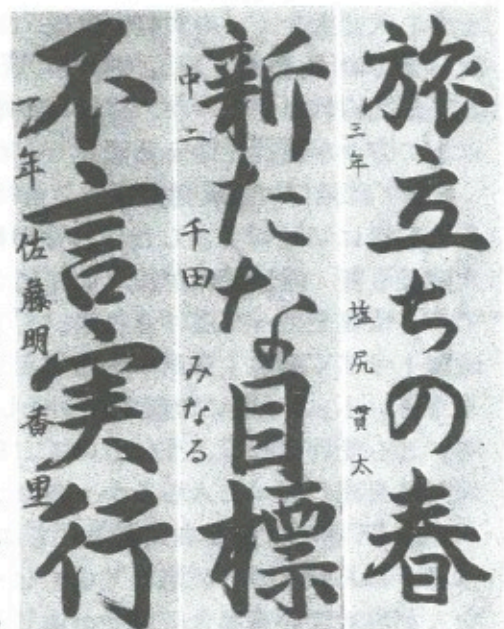 旅立ちの春
三年 塩尻貫太
新たな目標
中二 千田みなる
不言実行
一年 佐藤明香里